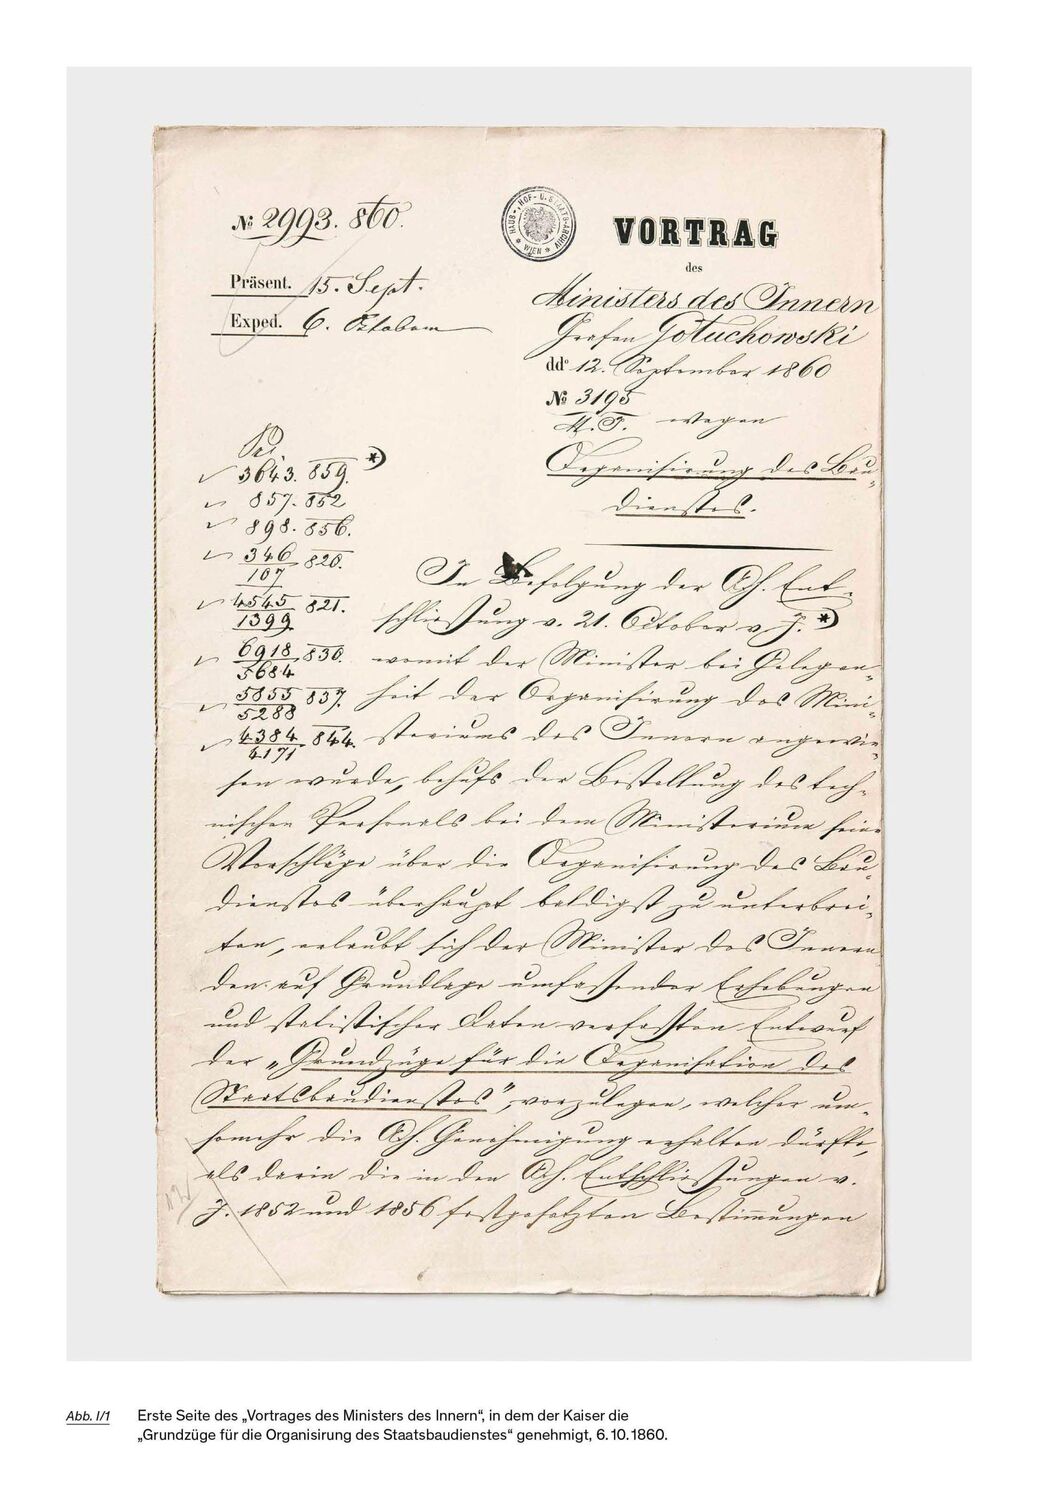 № 2993. 860.
Präsent. 15. Sept.
Exped. 6. Oktober
HAUS-, HOF- U. STAATS-ARCHIV
* WIEN *
VORTRAG
des
Ministers des Innern
Grafen Gołuchowski
ddo 12. September 1860
№ 3195
M. I. wegen
Organisirung des Bau-
dienstes.
3643. 859. *)
857. 852
898. 856.
346/107 820.
4545/1399 821.
6918/5684 830.
5855/5288 837.
4384/4171 844.
In Befolgung der Ah. Ent-
schließung v. 21. October v. J. *)
womit der Minister bei Gelegen-
heit der Organisirung des Mini-
steriums des Innern angewie-
sen wurde, behufs der Bestellung des tech-
nischen Personals bei dem Ministerium seine
Vorschläge über die Organisirung des Bau-
dienstes überhaupt baldigst zu unterbrei-
ten, erlaubt sich der Minister des Innern
den auf Grundlage umfassender Erhebungen
und statistischer Daten verfaßten Entwurf
der „Grundzüge für die Organisation des
Staatsbaudienstes", vorzulegen, welcher um-
somehr die Ah. Genehmigung erhalten dürfte,
als darin die in den Ah. Entschließungen v.
J. 1852 und 1856 festgesetzten Bestimmungen
Abb. I/1 Erste Seite des „Vortrages des Ministers des Innern“, in dem der Kaiser die
„Grundzüge für die Organisirung des Staatsbaudienstes“ genehmigt, 6.10.1860.